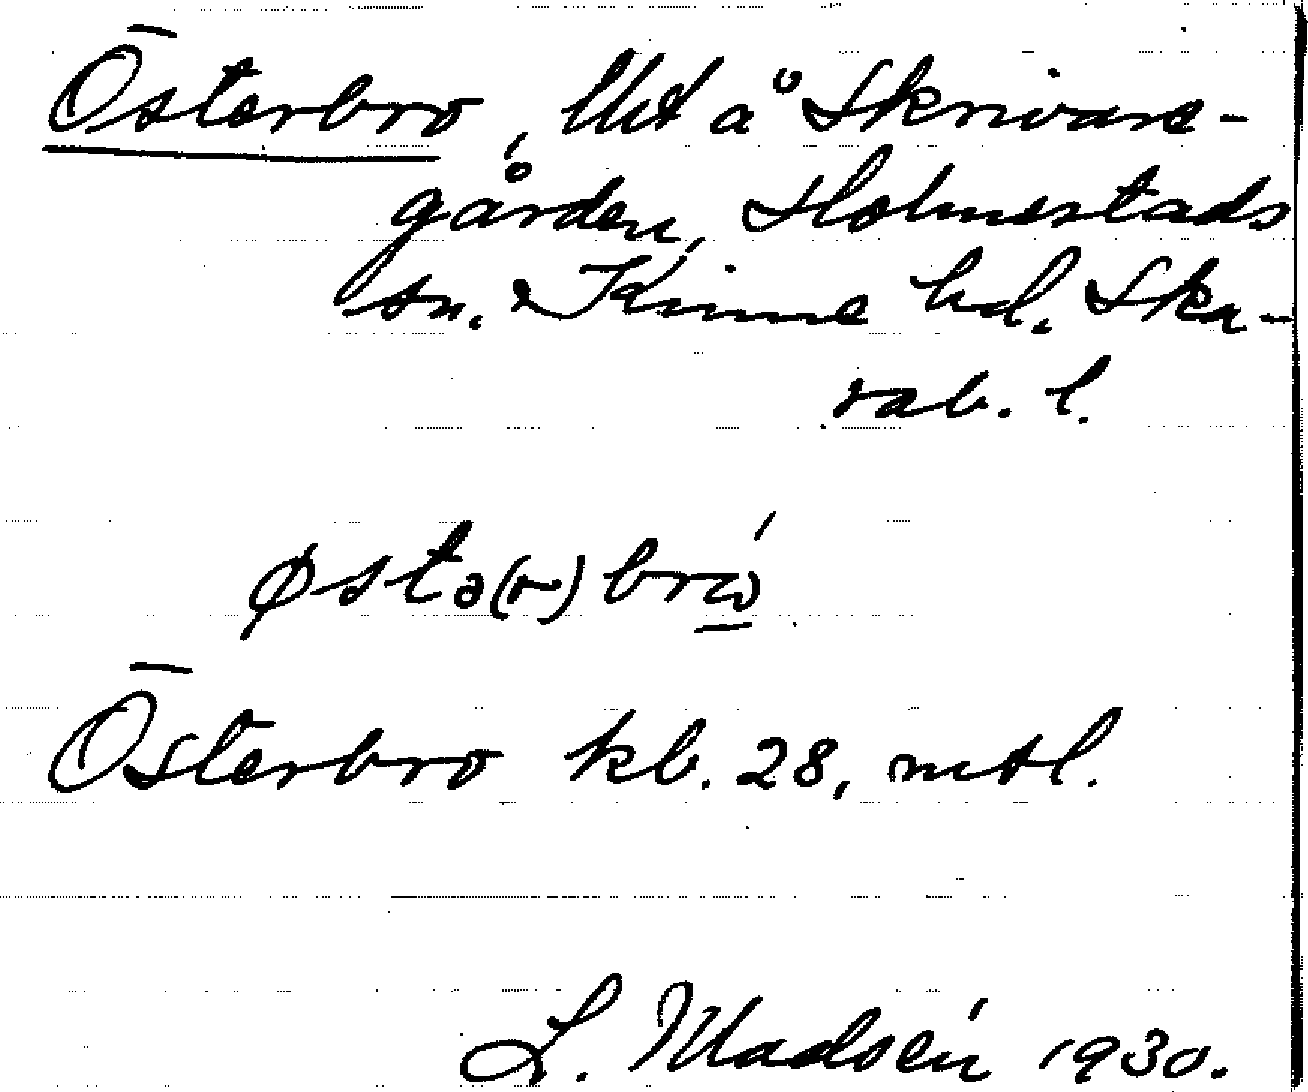 Österbro, Utd å Skrivare-
gården, Holmestads
sn. Kinne hd. Ska-
rab. l.
østə(r)bró
Österbro kb. 28, mtl.
L. Madsén 1930.